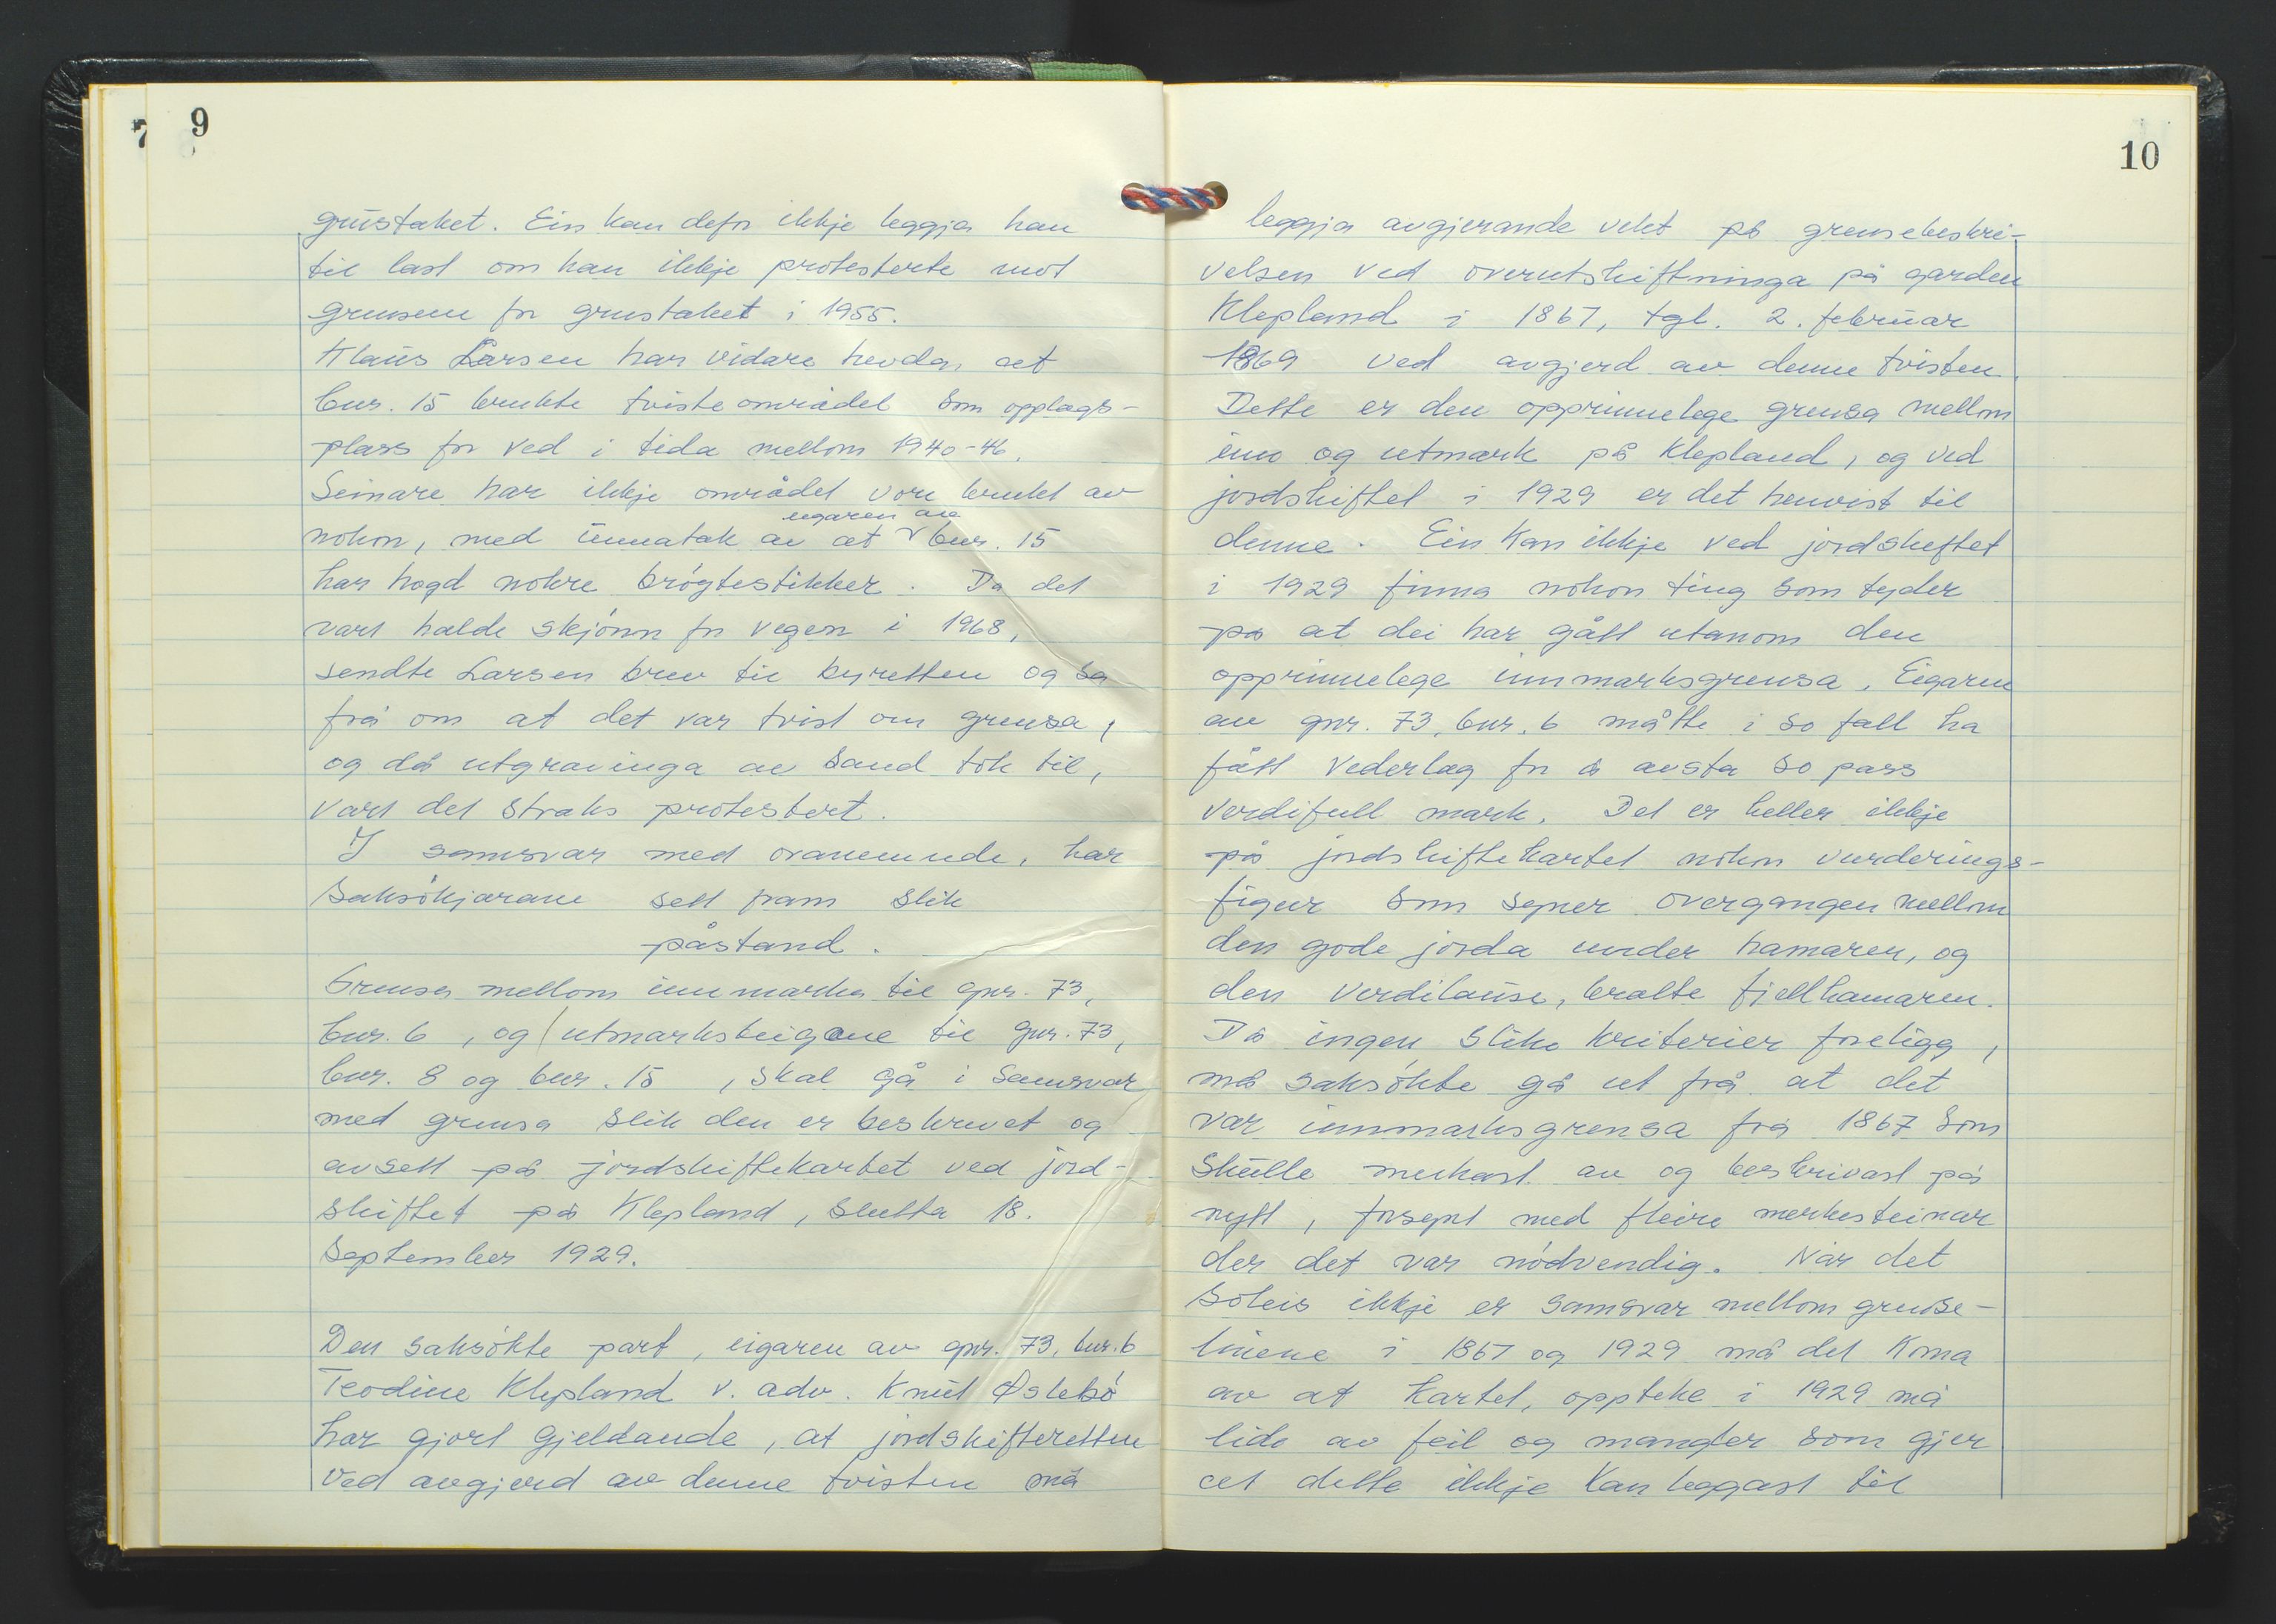 7
9
grustaket. Ein kan defor ikkje leggja han
til last om han ikkje protesterte mot
grensene for grustaket i 1955.
Klaus Larsen har vidare hevda, at
bnr. 15 brukte tvisteområdet som opplags-
plass for ved i tida mellom 1940-46.
Seinare har ikkje området vore brukt av
eigaren av
nokon, med unnatak av at bnr. 15
har hogd nokre brøytestikker. Da det
vart halde skjønn for vegen i 1968,
sendte Larsen brev til byretten og sa
frå om at det var tvist om grensa,
og då utgravinga av sand tok til,
vart det straks protestert.
I samsvar med ovanemnde, har
saksøkjarane sett fram slik
påstand.
Grensa mellom innmarka til gnr. 73,
bnr. 6, og utmarksteigane til gnr. 73,
bnr. 8 og bnr. 15, skal gå i samsvar
med grensa slik den er beskrevet og
avsett på jordskiftekartet ved jord-
skiftet på Klepland, slutta 18.
September 1929.
Den saksøkte part, eigaren av gnr. 73, bnr. 6
Teodine Klepland v. adv. Knut Øslebø
har gjort gjeldande, at jordskifteretten
ved avgjerd av denne tvisten må
10
leggja avgjerande vekt på grensebeskri-
velsen ved overutskiftninga på garden
Klepland i 1867, tgl. 2. februar
1869 ved avgjerd av denne tvisten.
Dette er den opprinnelege grensa mellom
inn og utmark på Klepland, og ved
jordskiftet i 1929 er det henvist til
denne. Ein kan ikkje ved jordskeftet
i 1929 finna nokon ting som tyder
på at dei har gått utanom den
opprinnelege innmarksgrensa. Eigaren
av gnr. 73, bnr. 6 måtte i so fall ha
fått vederlag for å avsta so pass
verdifull mark. Det er heller ikkje
på jordskiftekartet nokon vurderings-
figur som syner overgangen mellom
den gode jorda under hamaren, og
den verdilause, bratte fjellhamaren.
Då ingen slike kriterier foreligg,
må saksøkte gå ut frå at det
var innmarksgrensa frå 1867 som
skulle merkast av og beskrivast på
nytt, forsynt med fleire merkesteinar
der det var nødvendig. Når det
soleis ikkje er samsvar mellom grense-
linene i 1867 og 1929 må det koma
av at kartet, oppteke i 1929 må
lida av feil og mangler som gjer
at dette ikkje kan leggast til